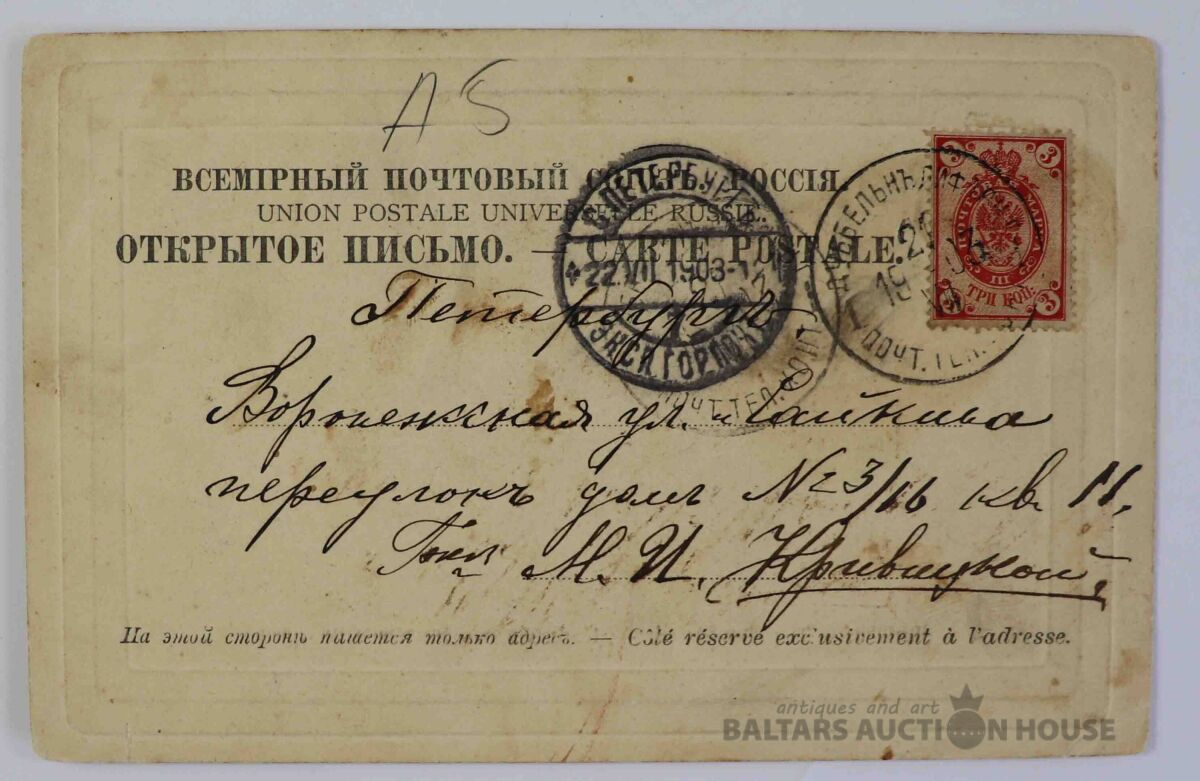 A 5
ВСЕМІРНЫЙ ПОЧТОВЫЙ РОССІЯ.
UNION POSTALE UNIVERSELLE RUSSIE.
ОТКРЫТОЕ ПИСЬМО. — CARTE POSTALE.
С.ПЕТЕРБУРГЪ
22.VII.1903
ГОР.ПОЧТ
ПОЧТ.ТЕЛ.
ПОЧТ.ТЕЛ.
3 3
ПОЧТОВАЯ МАРКА
III
ТРИ КОП:
3 3
Петербургъ
Воронежская ул. и Чайкина
переулокъ домъ №3/16 кв. 11.
М. И. Кривицкой.
На этой сторонѣ пишется только адресъ. — Côté réservé exclusivement à l'adresse.
antiques and art
BALTARS AUCTION HOUSE